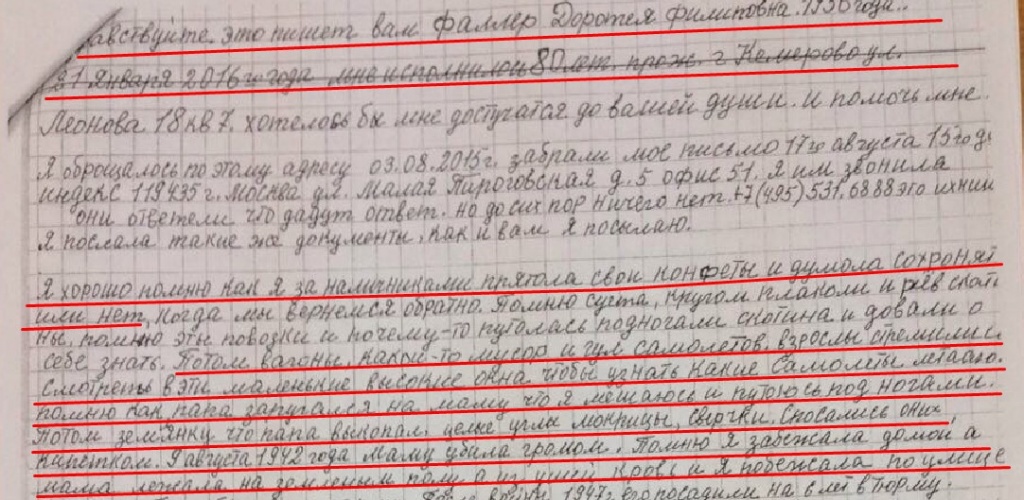 авствуйте. это пишет вам Фаллер Доротея Филиповна. 1936 года.
21 января 2016 го года мне исполнилось 80 лет. прож. г Кемерово ул.
Леонова 18 кв 7. хотелось бы мне достучатся до вашей души. и помочь мне.
Я оброщалось по этому адресу 03.08.2015г. забрали мое письмо 17го августа 15го
индекс 119435 г. Москва ул. Малая Пироговская д. 5 офис 51. Я им звонила
они ответели что дадут ответ. но до сих пор ничего нет. +7(495)531.6888 это ихнии
Я послала такие же документы, как и вам я посылаю.
Я хорошо помню как я за наличниками прятала свои конфеты и думола сохронят
или нет, когда мы вернемся обратно. Помню суета, кругом плаколи и рёв скоти
ны, помню эты повозки и почему-то путолась подногами скотина и довали о
себе знать. Потом вагоны, какой-то мусор и гул самолетов, взрослы стремились
смотреть в эти маленькие высокие окна чтобы узнать какие самолеты летают.
помню как папа заругался на маму что я мешаюсь и путоюсь под ногами.
Потом землянку что папа выкопал, целые углы мокрицы, сверчки. спосались от них,
кипетком. 9 августа 1942 года маму убила громом. Помню я забежала домой а
мама лежала на земленом полу а из ушей кровь и я побежала по улице
1947г. его посадили на 6 лет в тюрму.